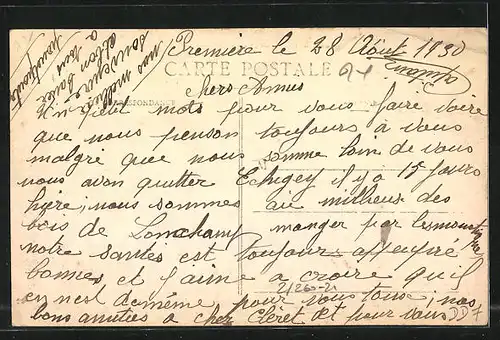 Première le 28 Août 1930
CARTE POSTALE
chers Amies
CORRESPONDANCE
un petit mots pour vous faire voire
que nous penson toujours à vous
malgré que nous somme loin de vous
nous avon quitter Echigey il y a 15 jours
hiere; nous sommes au millieus des
bois de Lonchamp manger par les moustique
notre santés est toujour
bonnes et j'aime a croire qu'il
en n'est de même pour vous tous; nos
bons amitiés a cher Cléret et pour vous
2/260-21
DD7
nos meilleur
souvenir
et bon
a